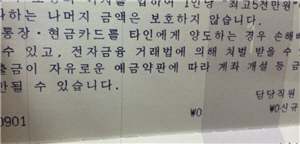 1인당 "최고5천만원"
하는 나머지 금액은 보호하지 않습니다.
통장·현금카드를 타인에게 양도하는 경우 손해배
수 있고, 전자금융 거래법에 의해 처벌 받을 수
출금이 자유로운 예금약관에 따라 계좌 개설 등 금
한될 수 있습니다.
담당직원
₩0 ₩0신규
0901